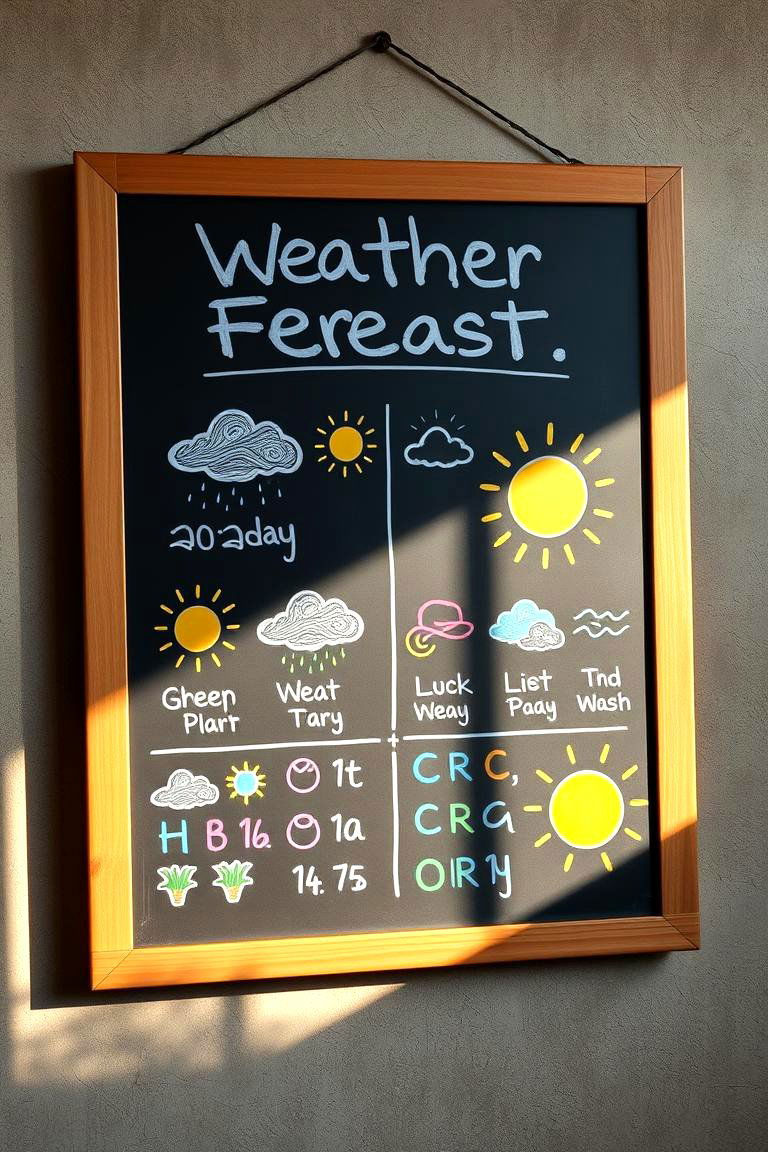 Weather
Fereast.
20·2day
Gheen
Plart
Weat
Tary
Luck
Weay
List
Paay
Tnd
Wash
1t
H B 16. 1a
14. 75
C R C,
C R G
OIR 1y